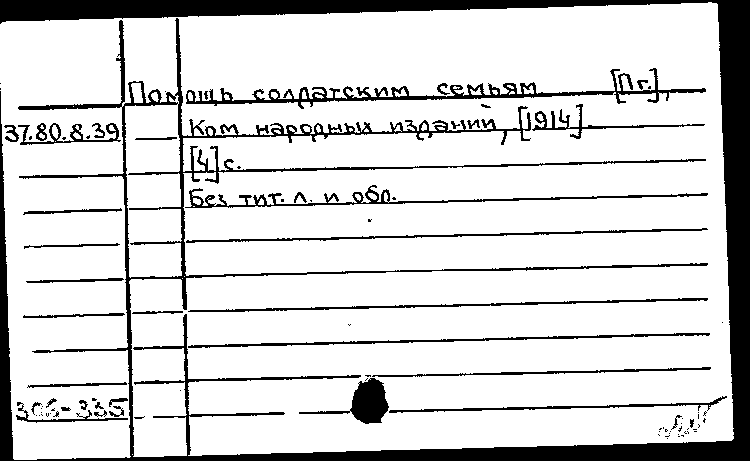 Помощь солдатским семьям [Пг.],
37.80.8.39 Ком народных изданий, [1914].
[4] с.
Без тит. л. и обл.
306-335